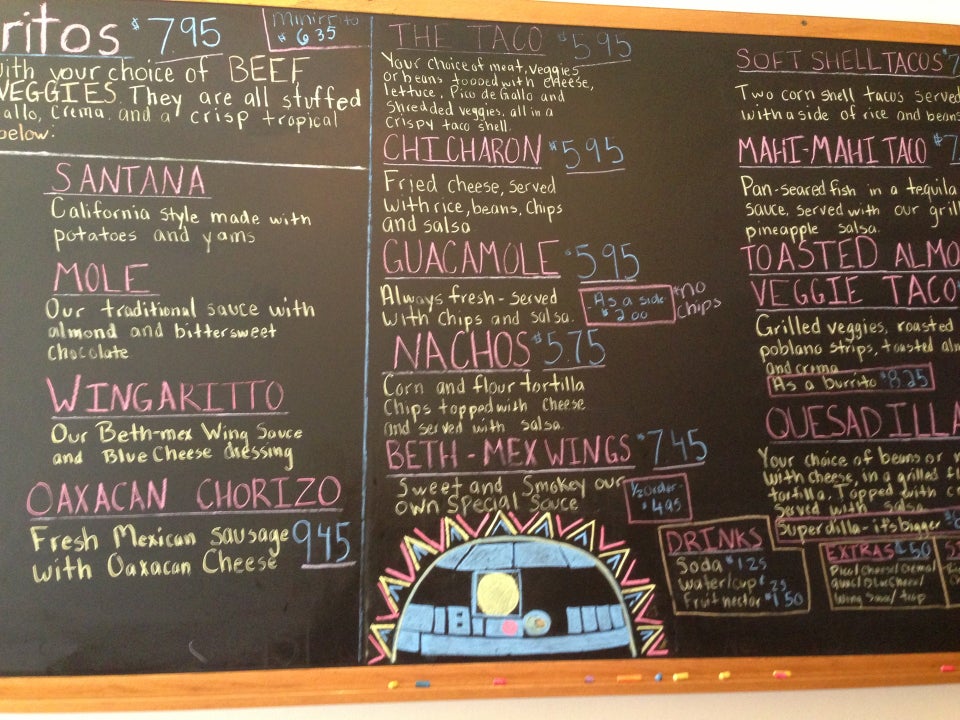 ritos $7.95
Minirrito
$6.35
with your choice of BEEF
VEGGIES. They are all stuffed
allo, Crema, and a crisp tropical
below:
SANTANA
California style made with
potatoes and yams
MOLE
Our traditional sauce with
almond and bittersweet
Chocolate
WINGARITTO
Our Beth-mex Wing Sauce
and Blue Cheese dressing
OAXACAN CHORIZO
Fresh Mexican sausage 9.45
with Oaxacan Cheese
THE TACO $5.95
Your choice of meat, veggies
or beans topped with cheese,
lettuce, Pico de Gallo and
shredded veggies, all in a
crispy taco shell.
CHICHARON $5.95
Fried cheese, served
with rice, beans, chips
and salsa
GUACAMOLE $5.95
Always fresh - served
with chips and salsa.
As a side
$2.00
*no
chips
NACHOS $5.75
Corn and flour tortilla
Chips topped with Cheese
and served with salsa.
BETH-MEX WINGS $7.45
Sweet and Smokey our
own Special Sauce
1/2 order-
$4.95
DRINKS
Soda $1.25
Water/cup $.25
Fruit nectar $1.50
SOFT SHELL TACOS $7
Two corn shell tacos served
with a side of rice and beans
MAHI-MAHI TACO $7
Pan-seared fish in a tequila
sauce, served with our grill
pineapple salsa.
TOASTED ALMO
VEGGIE TACO
Grilled veggies, roasted
poblano strips, toasted alm
and crema
As a burrito $8.25
QUESADILLA
Your choice of beans or
with cheese, in a grilled fl
tortilla. Topped with c
Served with salsa
Superdilla - it's bigger
EXTRAS $.50
Pico/Cheese/Crema/
guac/Blue Cheese/
Wing Sauce/trop